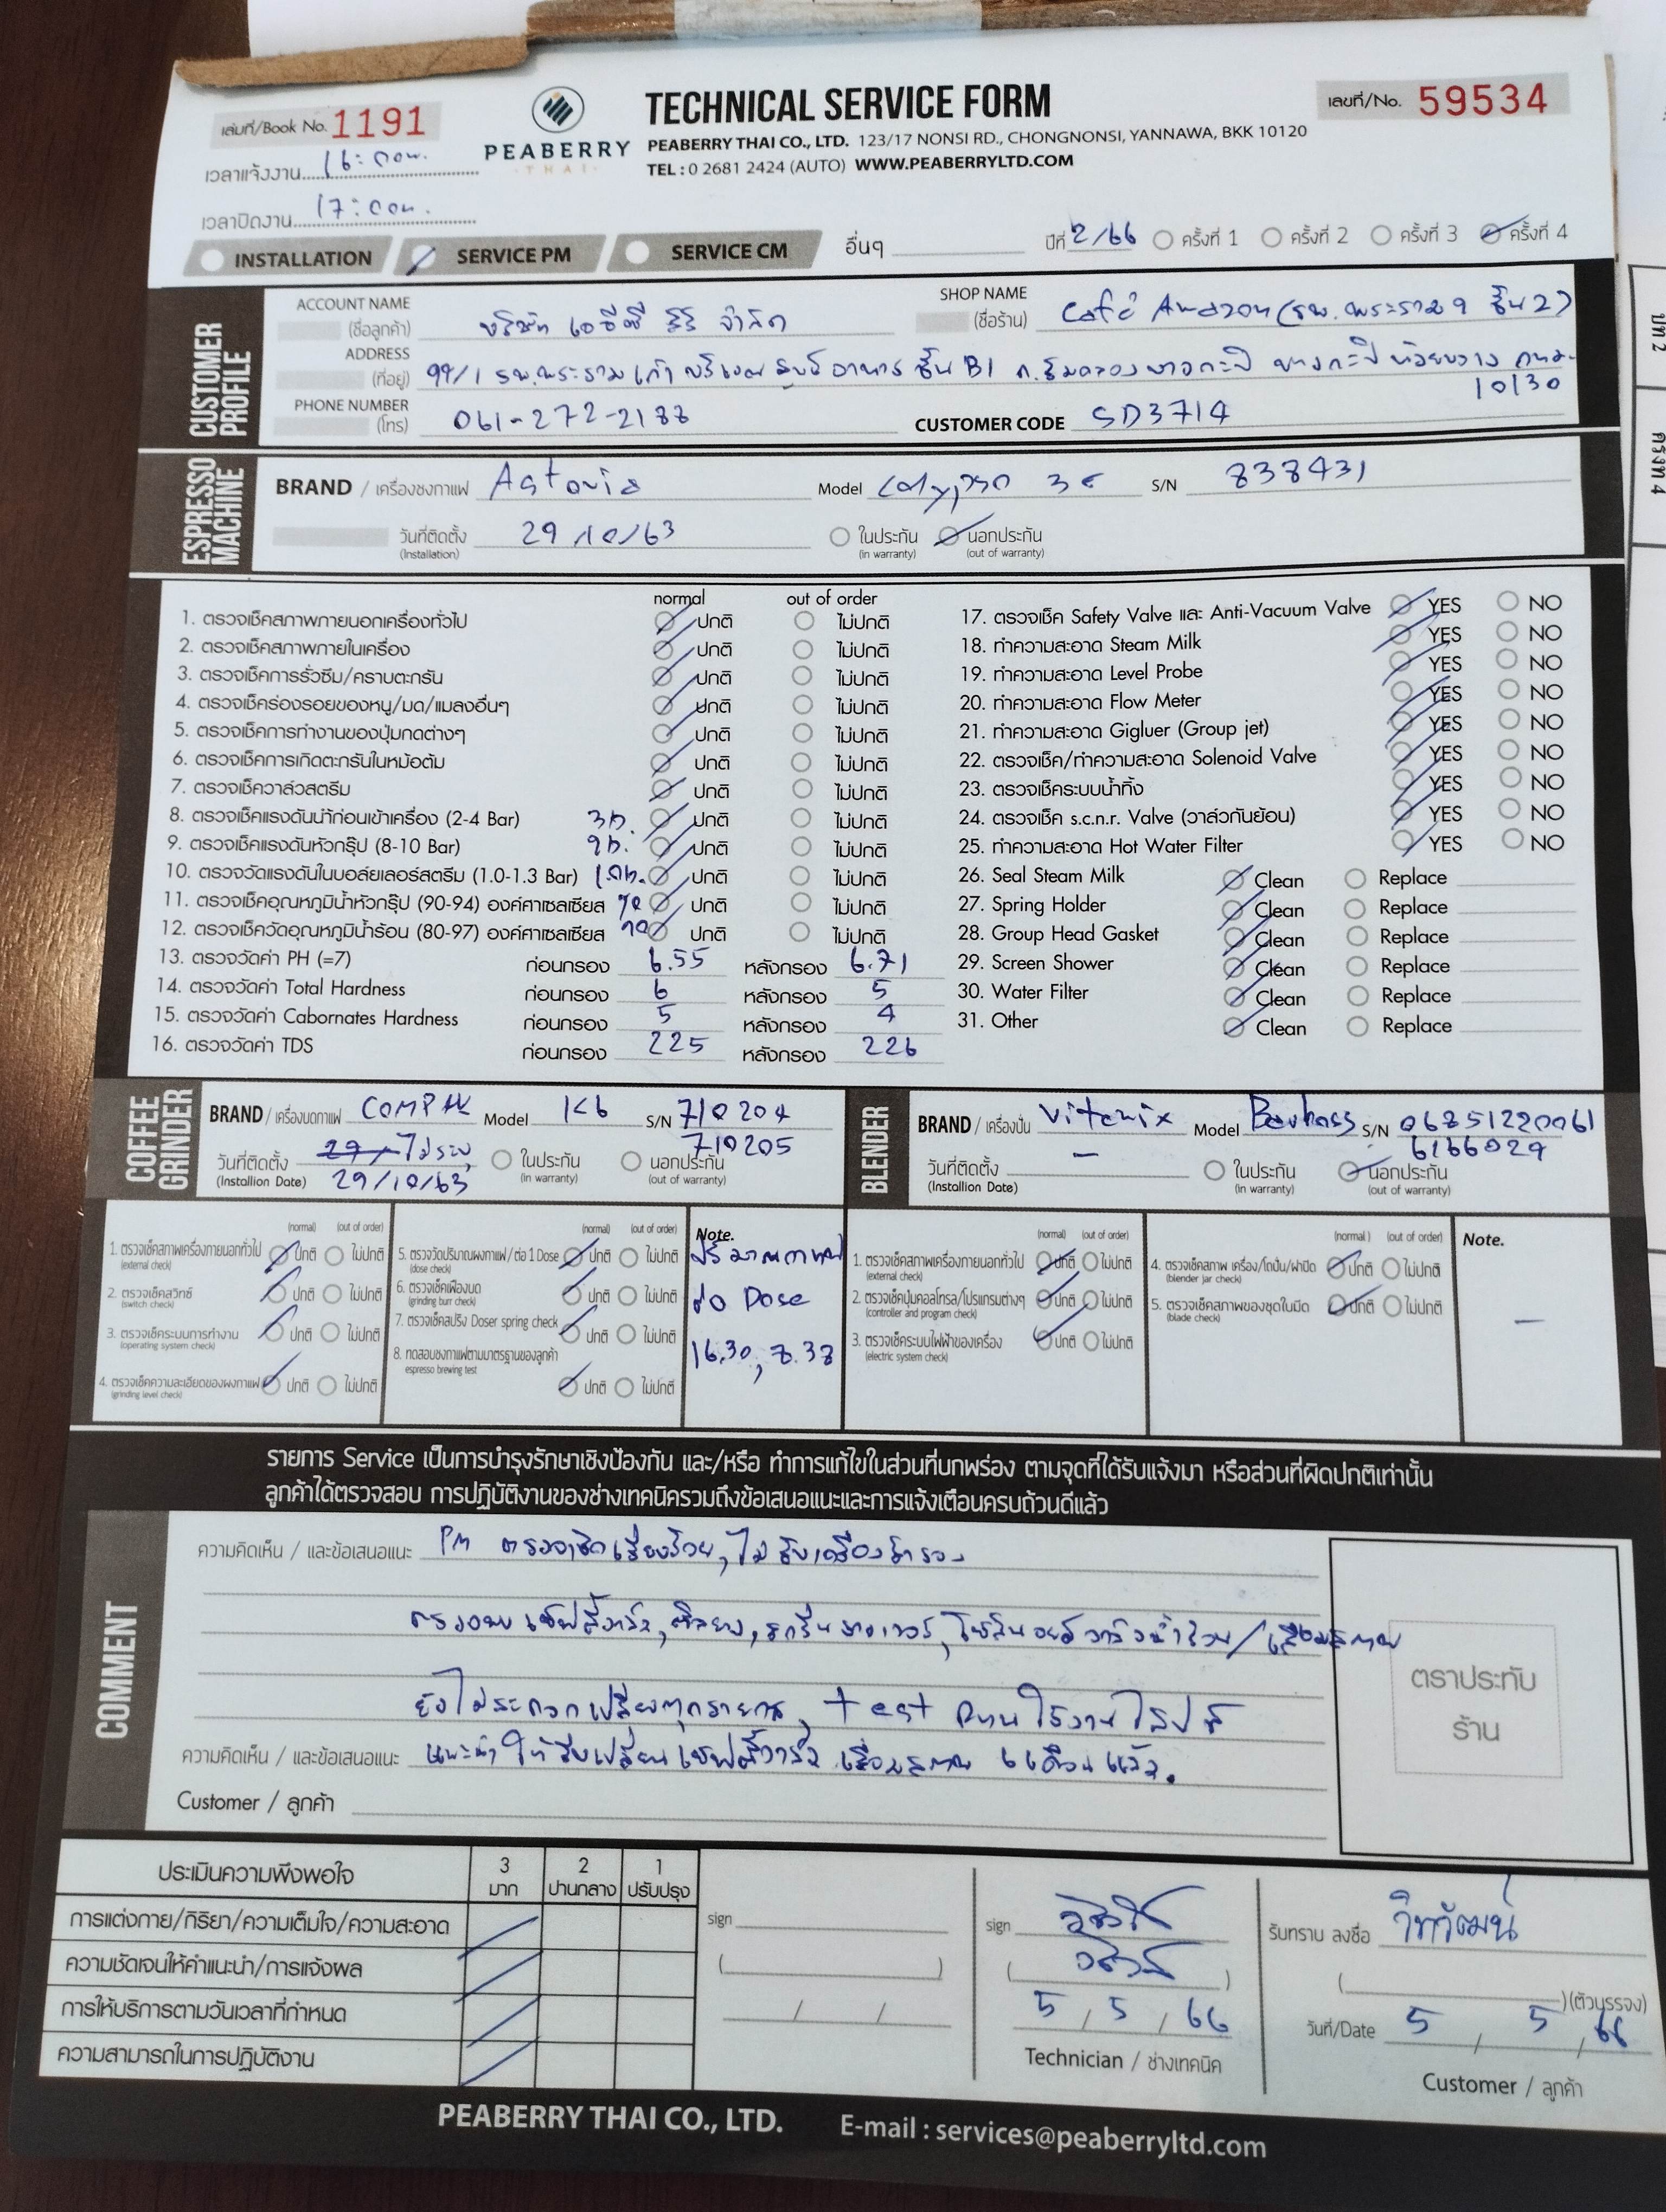 เล่มที่/Book No. 1191
PEABERRY
THAI
TECHNICAL SERVICE FORM
เลขที่/No. 59534
PEABERRY THAI CO., LTD. 123/17 NONSI RD., CHONGNONSI, YANNAWA, BKK 10120
TEL : 0 2681 2424 (AUTO) WWW.PEABERRYLTD.COM
เวลาแจ้งงาน 16:00น.
เวลาปิดงาน 17:00น.
INSTALLATION SERVICE PM SERVICE CM อื่นๆ ปีที่ 2/66 ครั้งที่ 1 ครั้งที่ 2 ครั้งที่ 3 ครั้งที่ 4
CUSTOMER PROFILE
ACCOUNT NAME (ชื่อลูกค้า) บริษัท เอซีซี จำกัด
SHOP NAME (ชื่อร้าน) Café Amazon (รพ.พระราม 9 ชั้น 2)
ADDRESS (ที่อยู่) 99/1 รพ.พระรามเก้า บริเวณศูนย์อาหาร ชั้น B1 ถ.ริมคลองบางกะปิ บางกะปิ ห้วยขวาง กทม.
10130
PHONE NUMBER (โทร) 061-272-2188 CUSTOMER CODE SD3714
ESPRESSO MACHINE
BRAND / เครื่องชงกาแฟ Astoria Model Calypso 3E S/N 838431
วันที่ติดตั้ง (Installation) 29/10/63 ในประกัน (in warranty) นอกประกัน (out of warranty)
normal out of order
1. ตรวจเช็คสภาพภายนอกเครื่องทั่วไป ปกติ ไม่ปกติ
2. ตรวจเช็คสภาพภายในเครื่อง ปกติ ไม่ปกติ
3. ตรวจเช็คการรั่วซึม/คราบตะกรัน ปกติ ไม่ปกติ
4. ตรวจเช็คร่องรอยของหนู/มด/แมลงอื่นๆ ปกติ ไม่ปกติ
5. ตรวจเช็คการทำงานของปุ่มกดต่างๆ ปกติ ไม่ปกติ
6. ตรวจเช็คการเกิดตะกรันในหม้อต้ม ปกติ ไม่ปกติ
7. ตรวจเช็ควาล์วสตรีม ปกติ ไม่ปกติ
8. ตรวจเช็คแรงดันน้ำก่อนเข้าเครื่อง (2-4 Bar) 3b. ปกติ ไม่ปกติ
9. ตรวจเช็คแรงดันหัวกรุ๊ป (8-10 Bar) 9b. ปกติ ไม่ปกติ
10. ตรวจวัดแรงดันในบอล์ยเลอร์สตรีม (1.0-1.3 Bar) 1.0b. ปกติ ไม่ปกติ
11. ตรวจเช็คอุณหภูมิน้ำหัวกรุ๊ป (90-94) องศ์ศาเซลเซียส 90 ปกติ ไม่ปกติ
12. ตรวจเช็ควัดอุณหภูมิน้ำร้อน (80-97) องศ์ศาเซลเซียส 90 ปกติ ไม่ปกติ
13. ตรวจวัดค่า PH (=7) ก่อนกรอง 6.55 หลังกรอง 6.71
14. ตรวจวัดค่า Total Hardness ก่อนกรอง 6 หลังกรอง 5
15. ตรวจวัดค่า Cabornates Hardness ก่อนกรอง 5 หลังกรอง 4
16. ตรวจวัดค่า TDS ก่อนกรอง 225 หลังกรอง 226
17. ตรวจเช็ค Safety Valve และ Anti-Vacuum Valve YES NO
18. ทำความสะอาด Steam Milk YES NO
19. ทำความสะอาด Level Probe YES NO
20. ทำความสะอาด Flow Meter YES NO
21. ทำความสะอาด Gigluer (Group jet) YES NO
22. ตรวจเช็ค/ทำความสะอาด Solenoid Valve YES NO
23. ตรวจเช็คระบบน้ำทิ้ง YES NO
24. ตรวจเช็ค s.c.n.r. Valve (วาล์วกันย้อน) YES NO
25. ทำความสะอาด Hot Water Filter YES NO
26. Seal Steam Milk Clean Replace
27. Spring Holder Clean Replace
28. Group Head Gasket Clean Replace
29. Screen Shower Clean Replace
30. Water Filter Clean Replace
31. Other Clean Replace
COFFEE GRINDER
BRAND / เครื่องบดกาแฟ COMPAK Model K6 S/N 710204
710205
วันที่ติดตั้ง (Installion Date) 29/10/63 ในประกัน (in warranty) นอกประกัน (out of warranty)
BLENDER
BRAND / เครื่องปั่น Vitamix Model Barboss S/N 06851220061
6166029
วันที่ติดตั้ง (Installion Date) - ในประกัน (in warranty) นอกประกัน (out of warranty)
(normal) (out of order)
1. ตรวจเช็คสภาพเครื่องภายนอกทั่วไป (external check) ปกติ ไม่ปกติ
2. ตรวจเช็คสวิทซ์ (switch check) ปกติ ไม่ปกติ
3. ตรวจเช็คระบบการทำงาน (operating system check) ปกติ ไม่ปกติ
4. ตรวจเช็คความละเอียดของผงกาแฟ (grinding level check) ปกติ ไม่ปกติ
(normal) (out of order)
5. ตรวจวัดปริมาณผงกาแฟ/ต่อ 1 Dose (dose check) ปกติ ไม่ปกติ
6. ตรวจเช็คเฟืองบด (grinding burr check) ปกติ ไม่ปกติ
7. ตรวจเช็คสปริง Doser spring check ปกติ ไม่ปกติ
8. ทดสอบชงกาแฟตามมาตรฐานของลูกค้า espresso brewing test ปกติ ไม่ปกติ
Note.
ปริมาณกาแฟ
ต่อ Dose
16.30, 8.38
(normal) (out of order)
1. ตรวจเช็คสภาพเครื่องภายนอกทั่วไป (external check) ปกติ ไม่ปกติ
2. ตรวจเช็คปุ่มคอลโทรล/โปรแกรมต่างๆ (controller and program check) ปกติ ไม่ปกติ
3. ตรวจเช็คระบบไฟฟ้าของเครื่อง (electric system check) ปกติ ไม่ปกติ
(normal) (out of order)
4. ตรวจเช็คสภาพ เครื่อง/โถปั่น/ฝาปิด (blender jar check) ปกติ ไม่ปกติ
5. ตรวจเช็คสภาพของชุดใบมีด (blade check) ปกติ ไม่ปกติ
Note.
-
รายการ Service เป็นการบำรุงรักษาเชิงป้องกัน และ/หรือ ทำการแก้ไขในส่วนที่บกพร่อง ตามจุดที่ได้รับแจ้งมา หรือส่วนที่ผิดปกติเท่านั้น
ลูกค้าได้ตรวจสอบ การปฏิบัติงานของช่างเทคนิครวมถึงข้อเสนอแนะและการแจ้งเตือนครบถ้วนดีแล้ว
COMMENT
ความคิดเห็น / และข้อเสนอแนะ PM ตรวจเช็คเรียบร้อย, ไม่รับเครื่องสำรอง
ตรวจพบ เซฟตี้วาล์ว, ซีลยาง, สกรีนชาวเวอร์, โซลินอยด์วาล์วน้ำร้อน/เสื่อมสภาพ
ยังไม่สะดวกเปลี่ยนทุกรายการ, test
ความคิดเห็น / และข้อเสนอแนะ แนะนำให้รีบเปลี่ยนเซฟตี้วาล์ว เสื่อมสภาพ 6 เดือนแล้ว.
Customer / ลูกค้า
ตราประทับ
ร้าน
ประเมินความพึงพอใจ 3 มาก 2 ปานกลาง 1 ปรับปรุง
การแต่งกาย/กิริยา/ความเต็มใจ/ความสะอาด
ความชัดเจนให้คำแนะนำ/การแจ้งผล
การให้บริการตามวันเวลาที่กำหนด
ความสามารถในการปฏิบัติงาน
sign
( )
/ /
sign
5 / 5 / 66
Technician / ช่างเทคนิค
รับทราบ ลงชื่อ วิทวัฒน์
( ) (ตัวบรรจง)
วันที่/Date 5 / 5 / 66
Customer / ลูกค้า
PEABERRY THAI CO., LTD. E-mail : services@peaberryltd.com
บท 2
ครั้งที่ 4